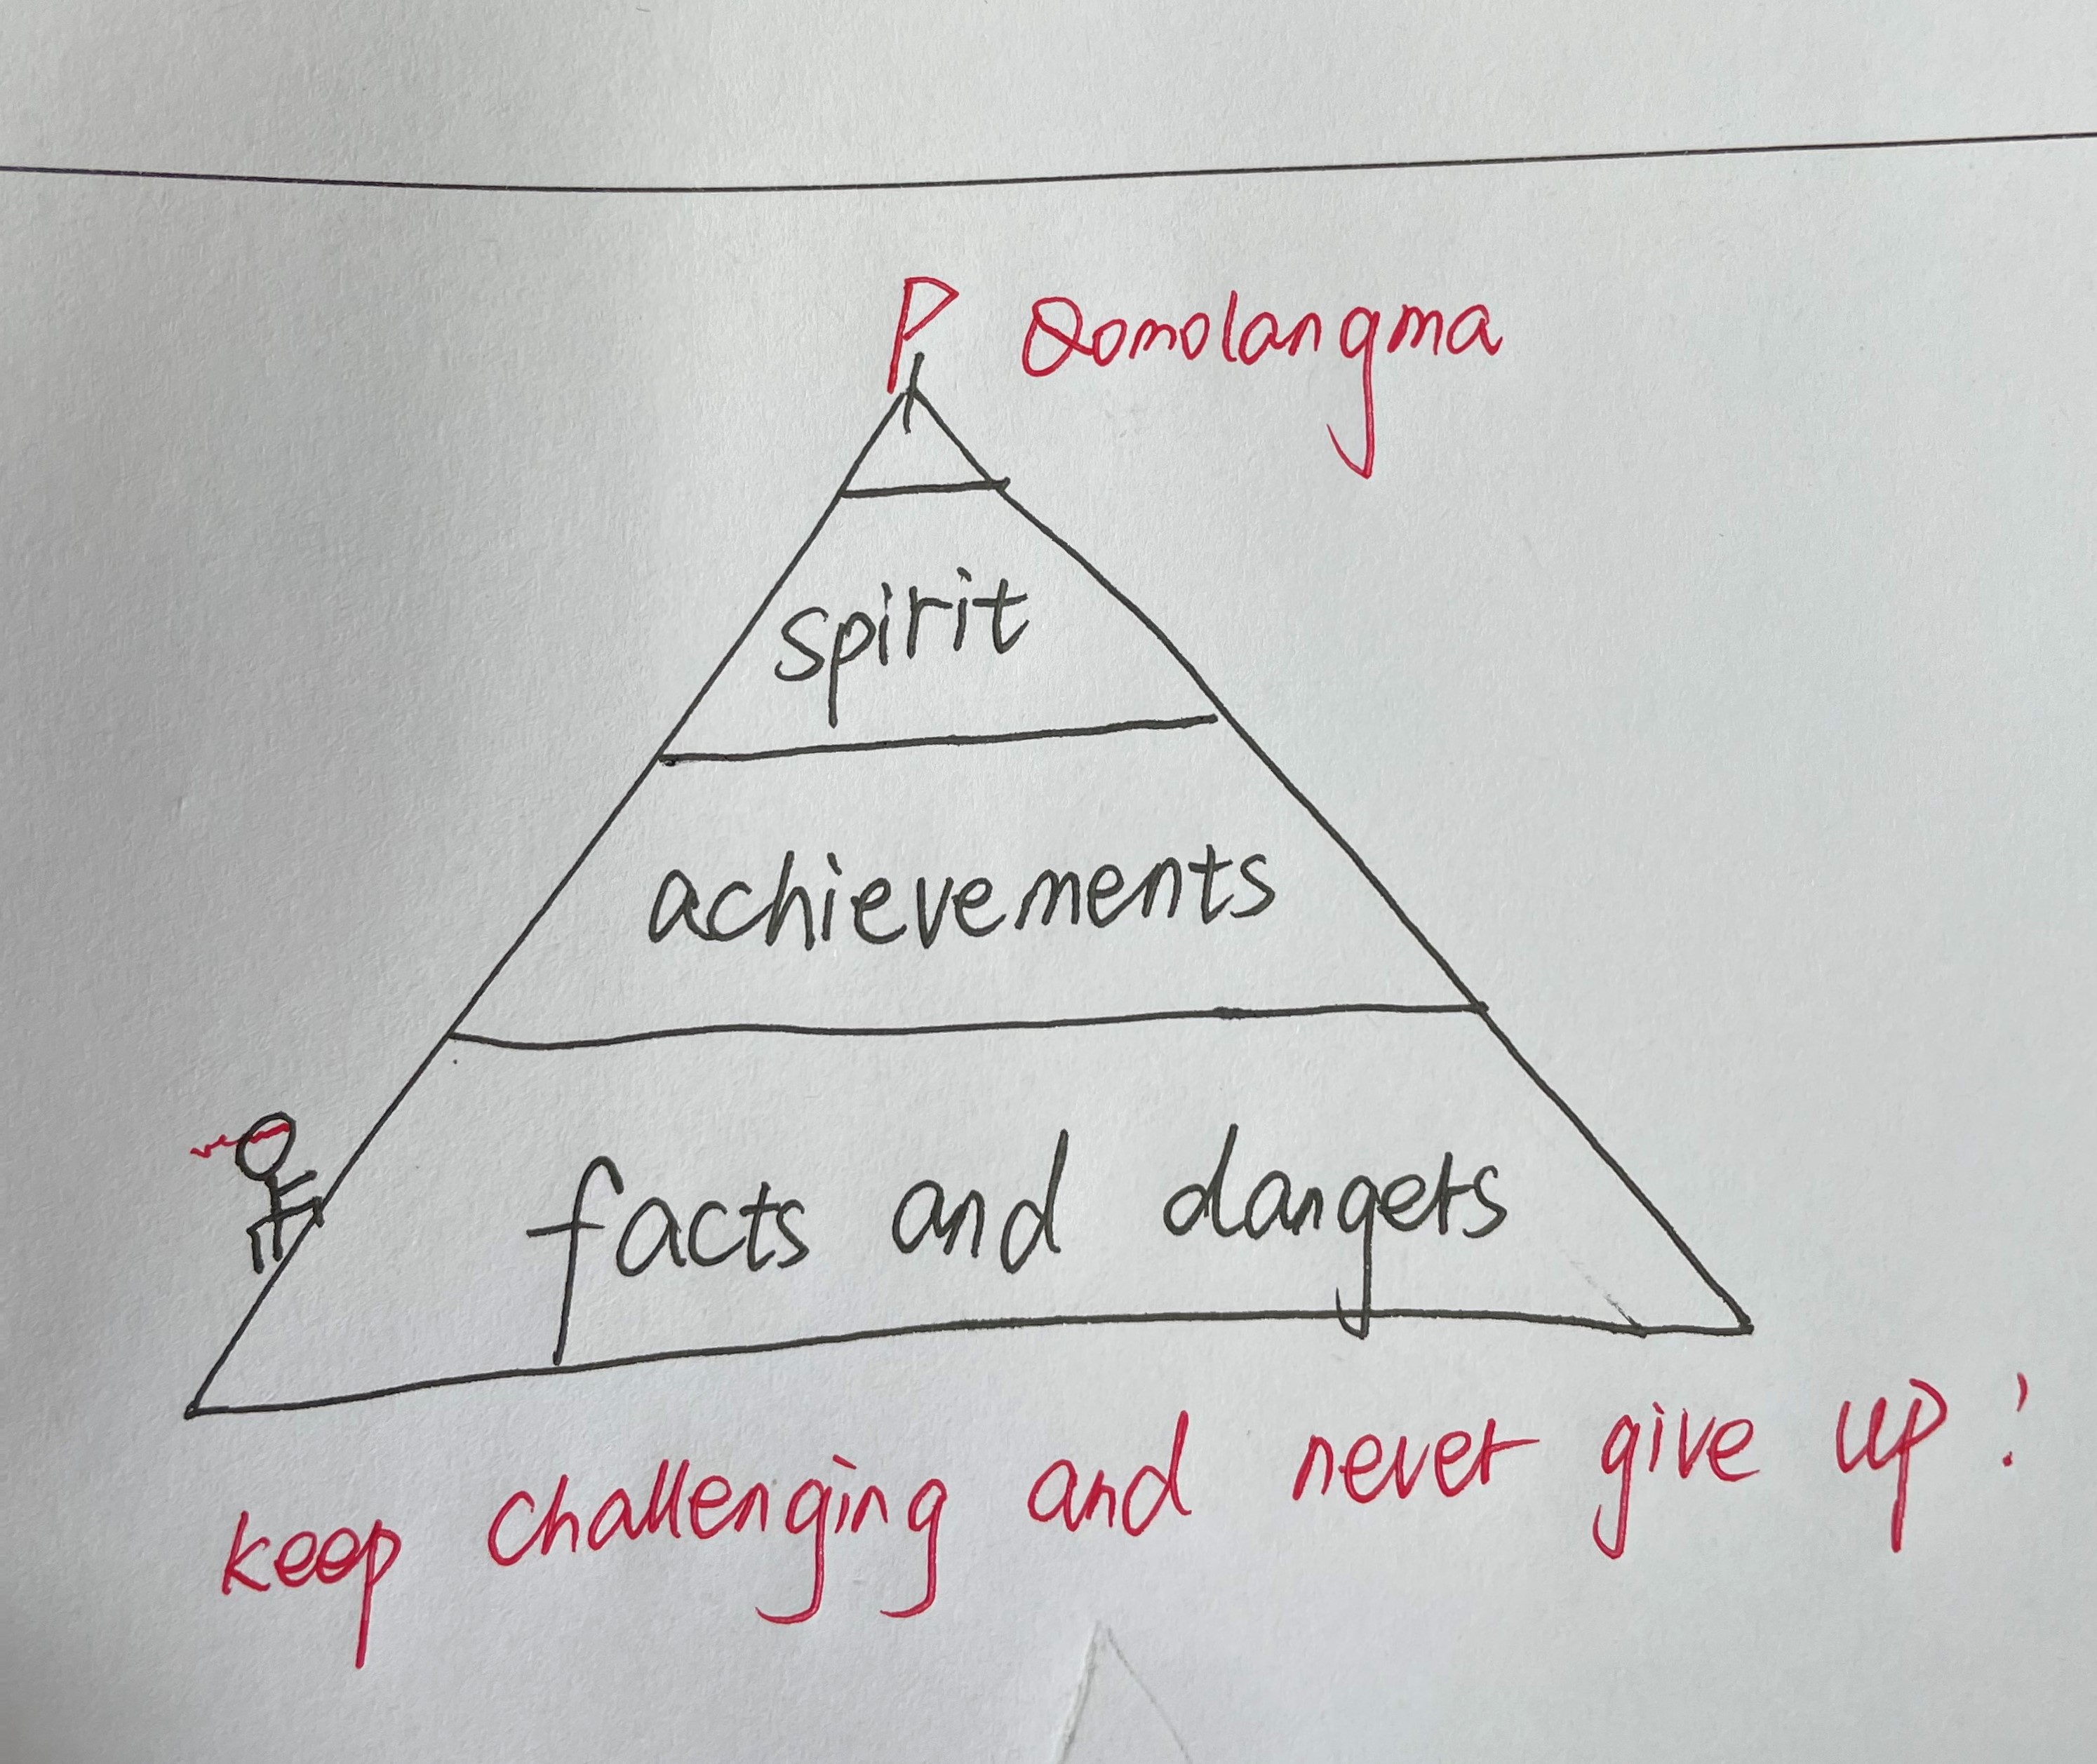 Qomolangma
spirit
achievements
facts and dangers
keep challenging and never give up!